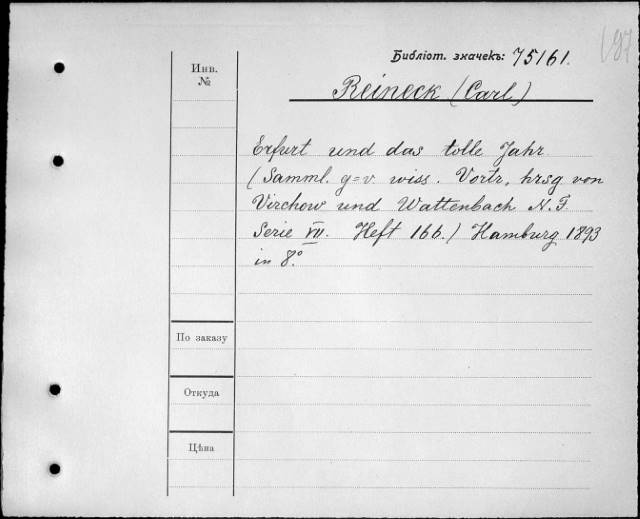 Библіот. значекъ: 75161.
Инв.
№
Reineck (Carl)
Erfurt und das tolle Jahr
(Samml. g=v. wiss. Vortr. hrsg von
Virchow und Wattenbach N. F.
Serie VII. Heft 166.) Hamburg 1893
in 8.º
По заказу
Откуда
Цѣна